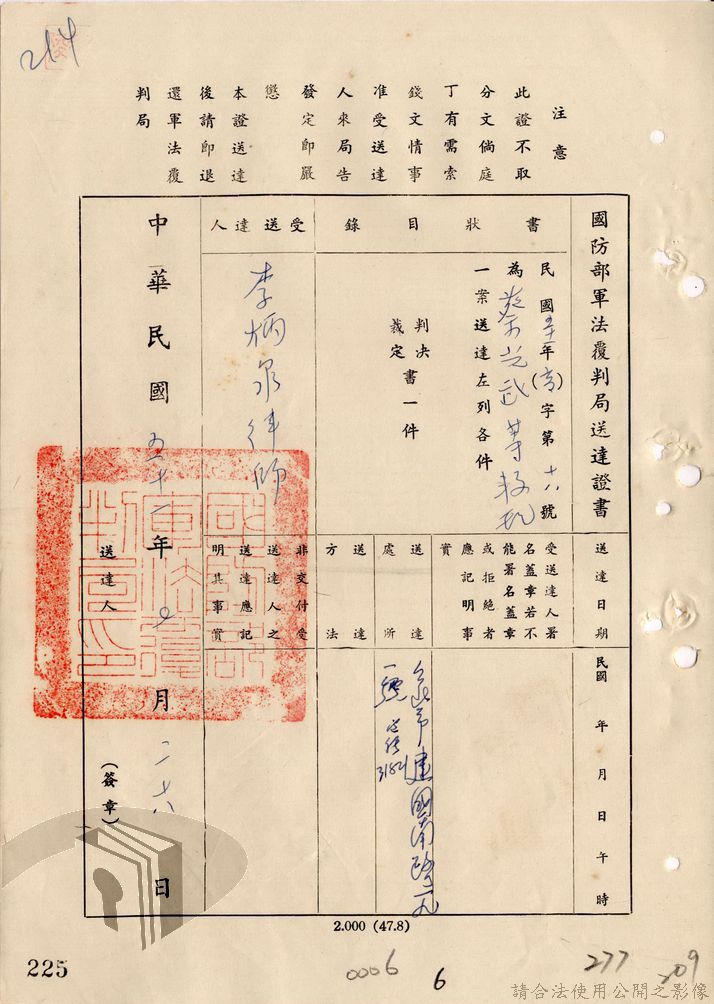 214
注意
此證不取
分文倘庭
丁有需索
錢文情事
准受送達
人來局告
發定即嚴
懲
本證送達
後請即退
還軍法覆
判局
國防部軍法覆判局送達證書
書狀目錄
民國五十一年(高)字第十六號
為蔡光武等叛亂
一案送達左列各件
判決
裁定書一件
受送達人
李炳泉律師
送達日期
民國 年 月 日 午 時
受送達人署
名蓋章若不
能署名蓋章
或拒絕者
應記明事
實
送達處所
台北市建國南路
一號
送達方法
非交付受
送達人之
送達應記
明其事實
中華民國五十一年 月二十六日
送達人
(簽章)
國防部軍法覆判局印
2.000 (47.8)
225
0006
6
277
209
請合法使用公開之影像